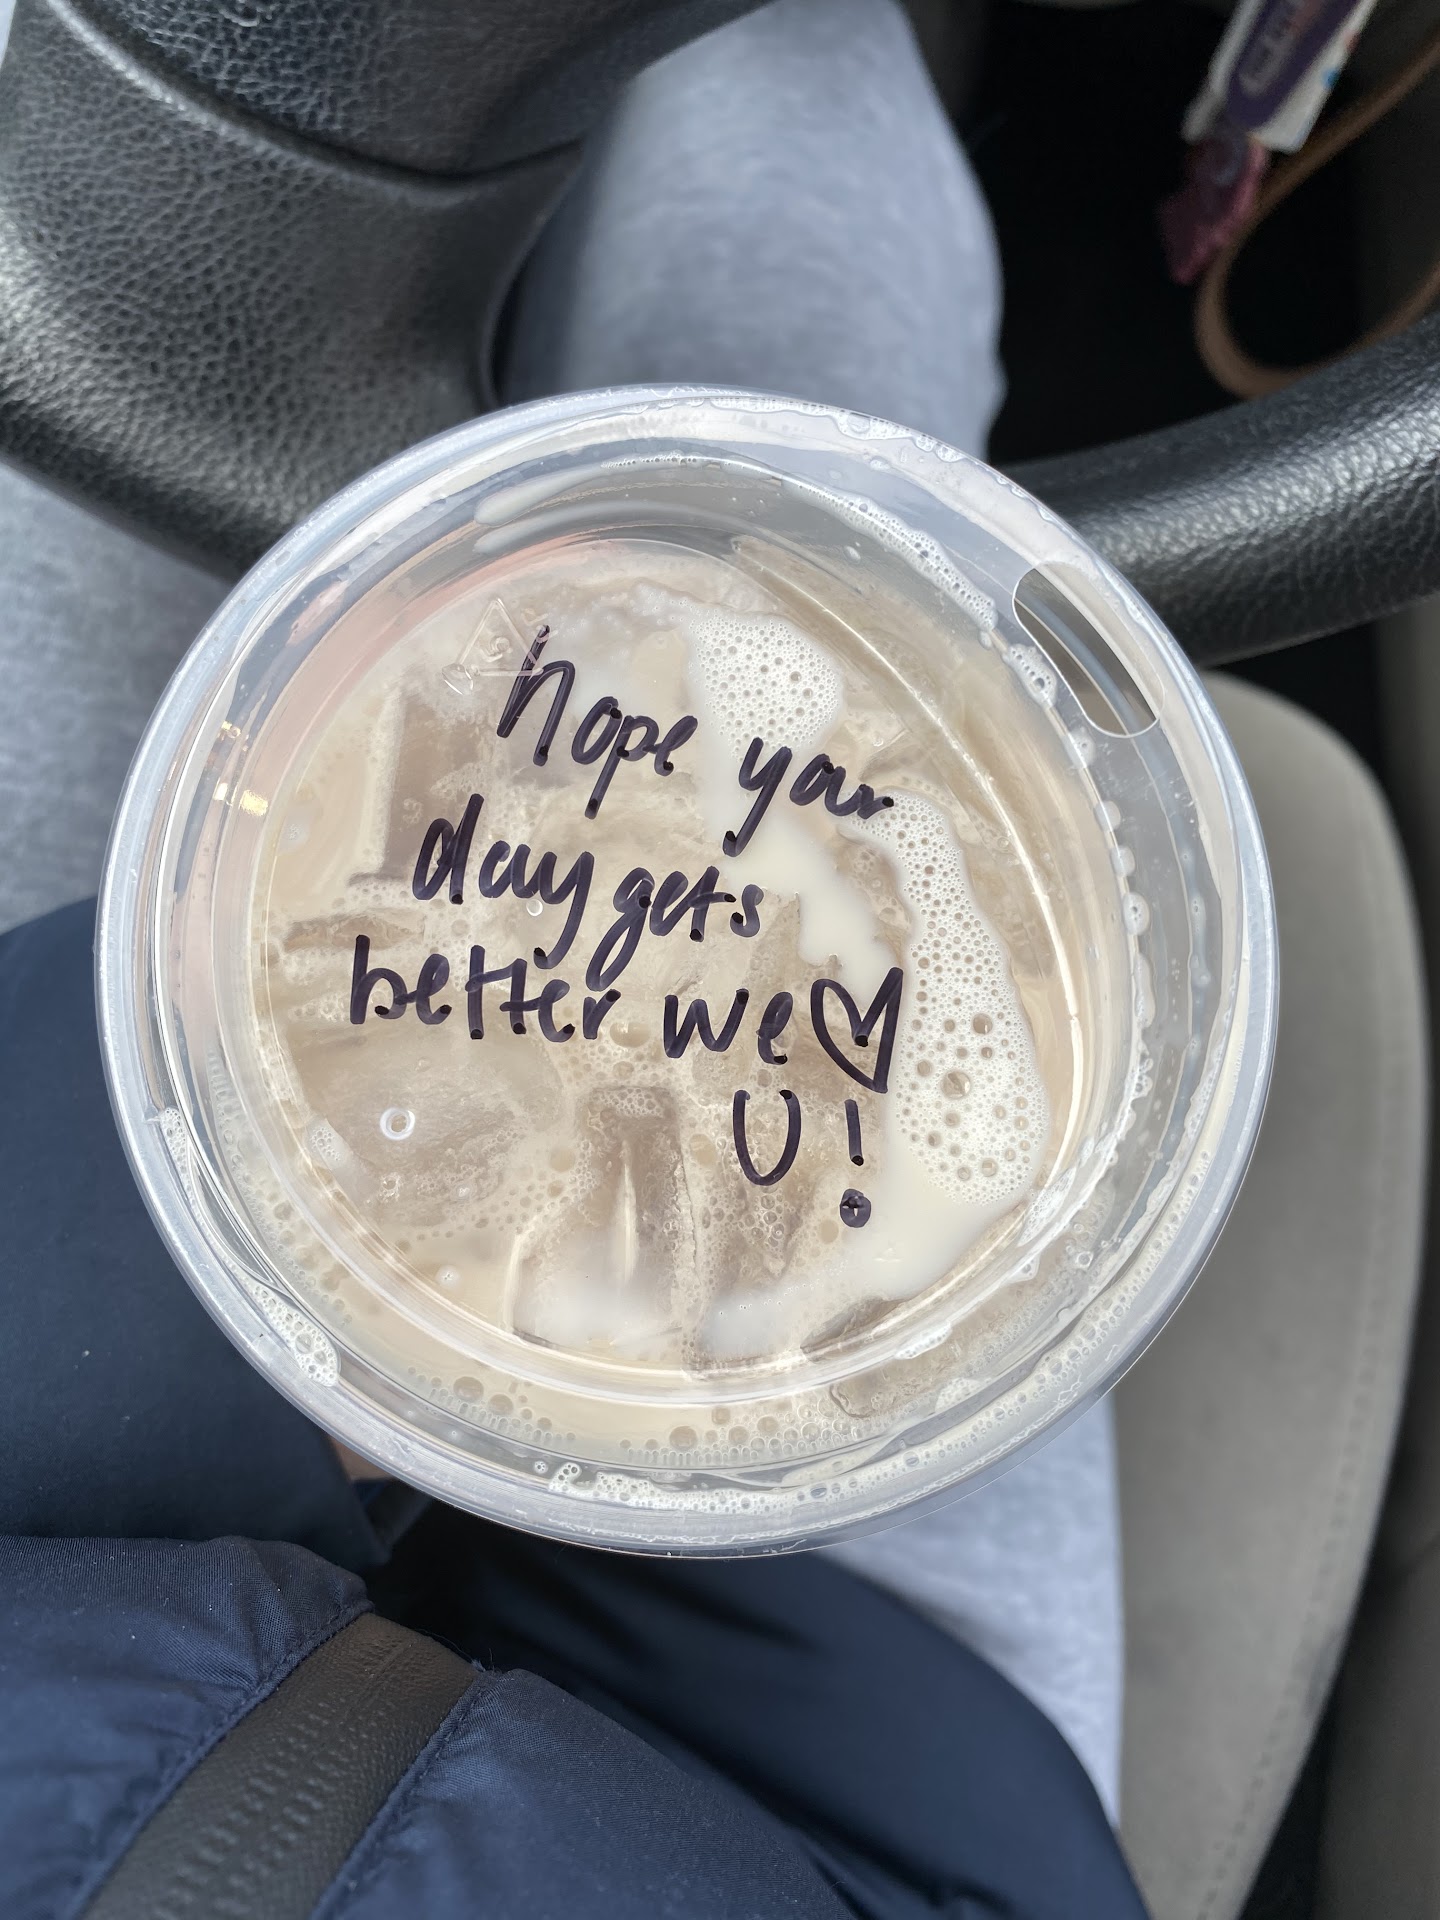 hope your
day gets
better we ♡
U!